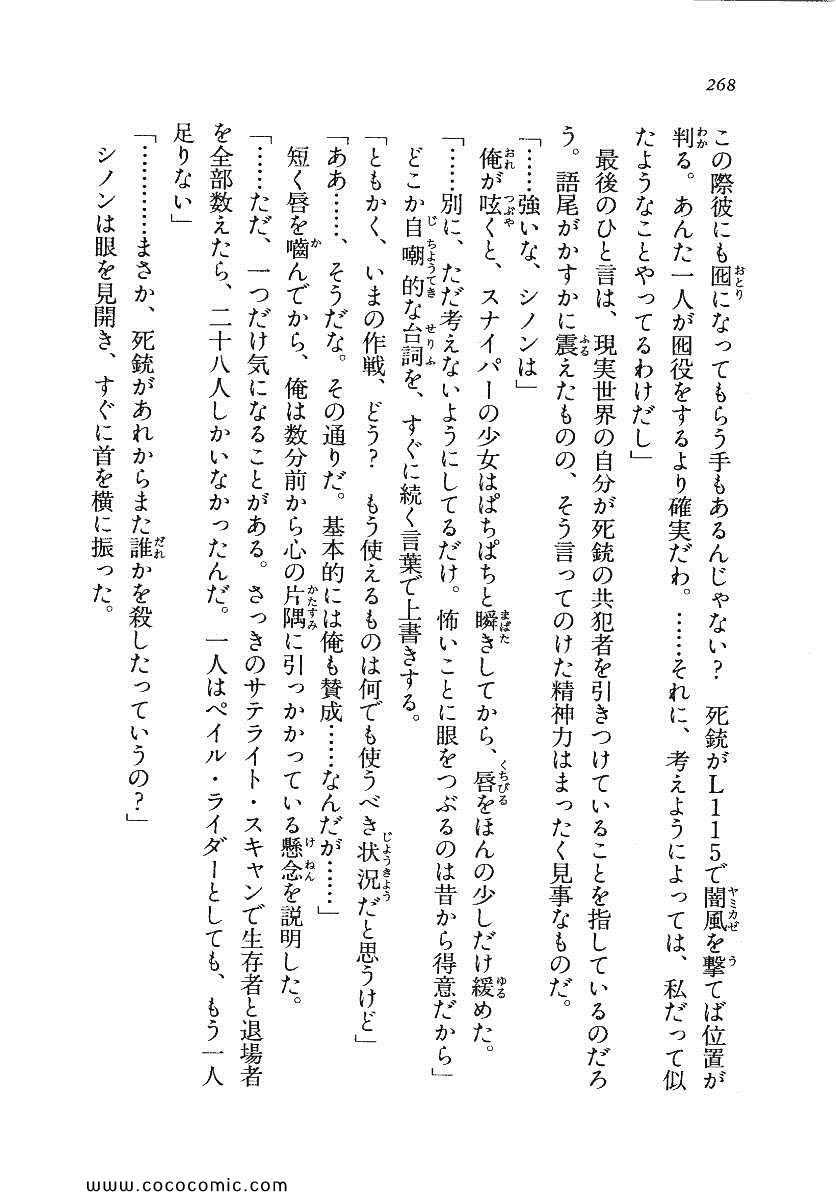 268
この際彼にも囮になってもらう手もあるんじゃない？　死銃がL115で闇風を撃てば位置が
判る。あんた一人が囮役をするより確実だわ。……それに、考えようによっては、私だって似
たようなことやってるわけだし」
最後のひと言は、現実世界の自分が死銃の共犯者を引きつけていることを指しているのだろ
う。語尾がかすかに震えたものの、そう言ってのけた精神力はまったく見事なものだ。
「……強いな、シノンは」
俺が呟くと、スナイパーの少女はぱちぱちと瞬きしてから、唇をほんの少しだけ緩めた。
「……別に、ただ考えないようにしてるだけ。怖いことに眼をつぶるのは昔から得意だから」
どこか自嘲的な台詞を、すぐに続く言葉で上書きする。
「ともかく、いまの作戦、どう？　もう使えるものは何でも使うべき状況だと思うけど」
「ああ……、そうだな。その通りだ。基本的には俺も賛成……なんだが……」
短く唇を嚙んでから、俺は数分前から心の片隅に引っかかっている懸念を説明した。
「……ただ、一つだけ気になることがある。さっきのサテライト・スキャンで生存者と退場者
を全部数えたら、二十八人しかいなかったんだ。一人はペイル・ライダーとしても、もう一人
足りない」
「…………まさか、死銃があれからまた誰かを殺したっていうの？」
シノンは眼を見開き、すぐに首を横に振った。
www.cococomic.com/